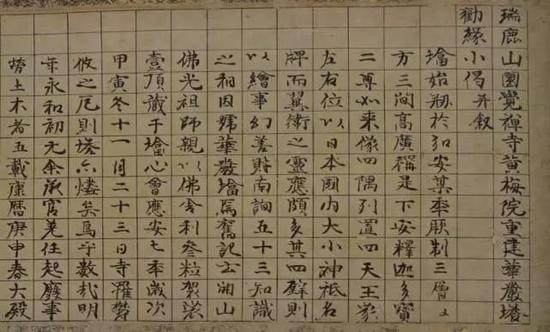 瑞鹿山圓覺禪寺黃梅院重建華嚴塔
勸緣小偈并叙
塔始剏於弘安某年厥制三層々
方三間高廣稱是下安釋迦多寶
二尊如来像四隅列置四天王象
左右位以日本國内大小神祇名
牌而翼衛之靈應頗多其四壁則
以繪事幻善財南詢五十三知識
之相因號華嚴塔焉舊記云開山
佛光祖師親以佛舎利叁粒袈裟
壹頂藏于塔心會應安七年歳次
甲寅冬十一月二十三日寺罹欝
攸之厄則塔亦燼矣烏乎數哉明
年永和初元余承官差任起廢事
勞土木者五載康暦庚申春大殿